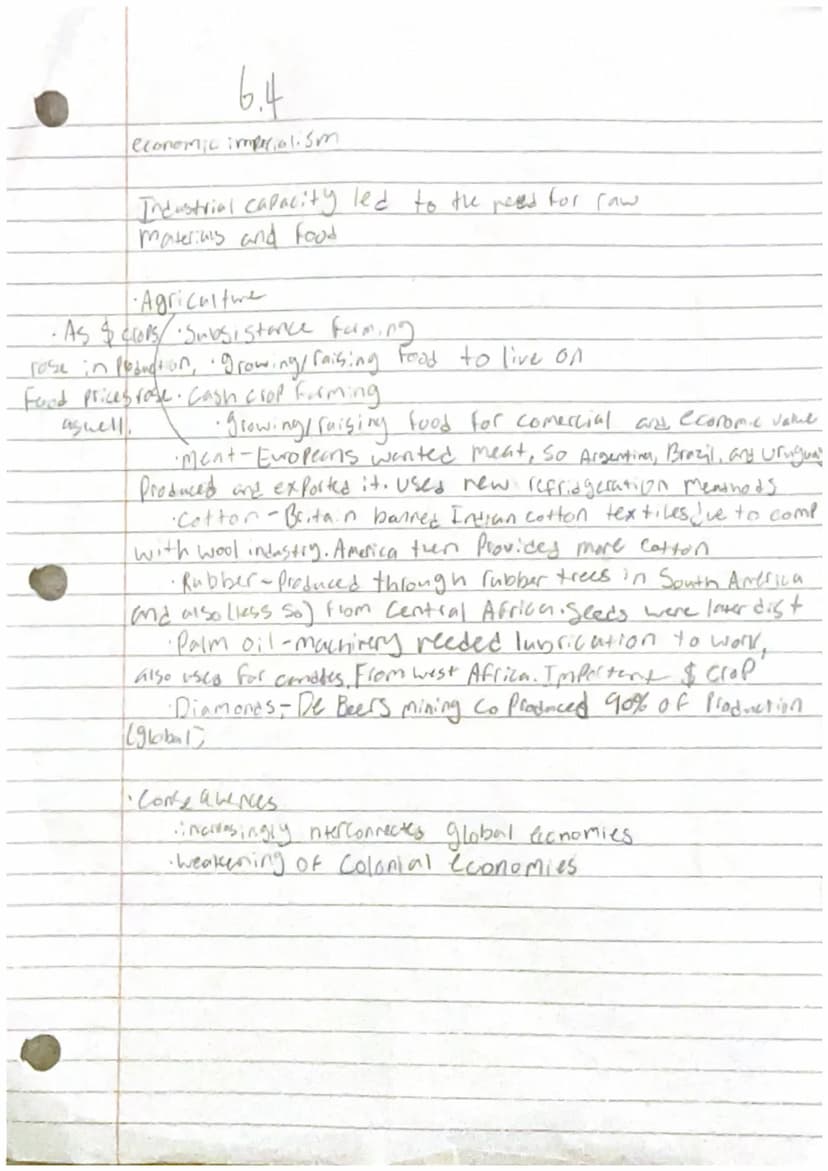 6.4
economic imperialism
Industrial capacity led to the need for raw
materials and food
·Agriculture
·Subsistance farming
·growing/raising food to live on
·Cash crop farming
·growing/raising food for comercial and economic value
·As $ crops
rose in production,
food prices rose
aswell.
·Meat-Europeans wanted meat, so Argentina, Brazil, and Uruguay
produced and exported it. Used new refridgeration menthods
·Cotton-Britain banned Indian cotton textiles due to comp
with wool industry. America then provided more cotton
·Rubber-Produced through rubber trees in South America
and also (less so) from Central Africa. Seeds were later dist
·Palm oil-machinery needed lubrication to work,
also used for candles. From west Africa. Important $ crop
·Diamonds-De Beers mining Co produced 90% of production
(global)
·Consequences
·increasingly nterconnected global economies
·weakening of colonial economies